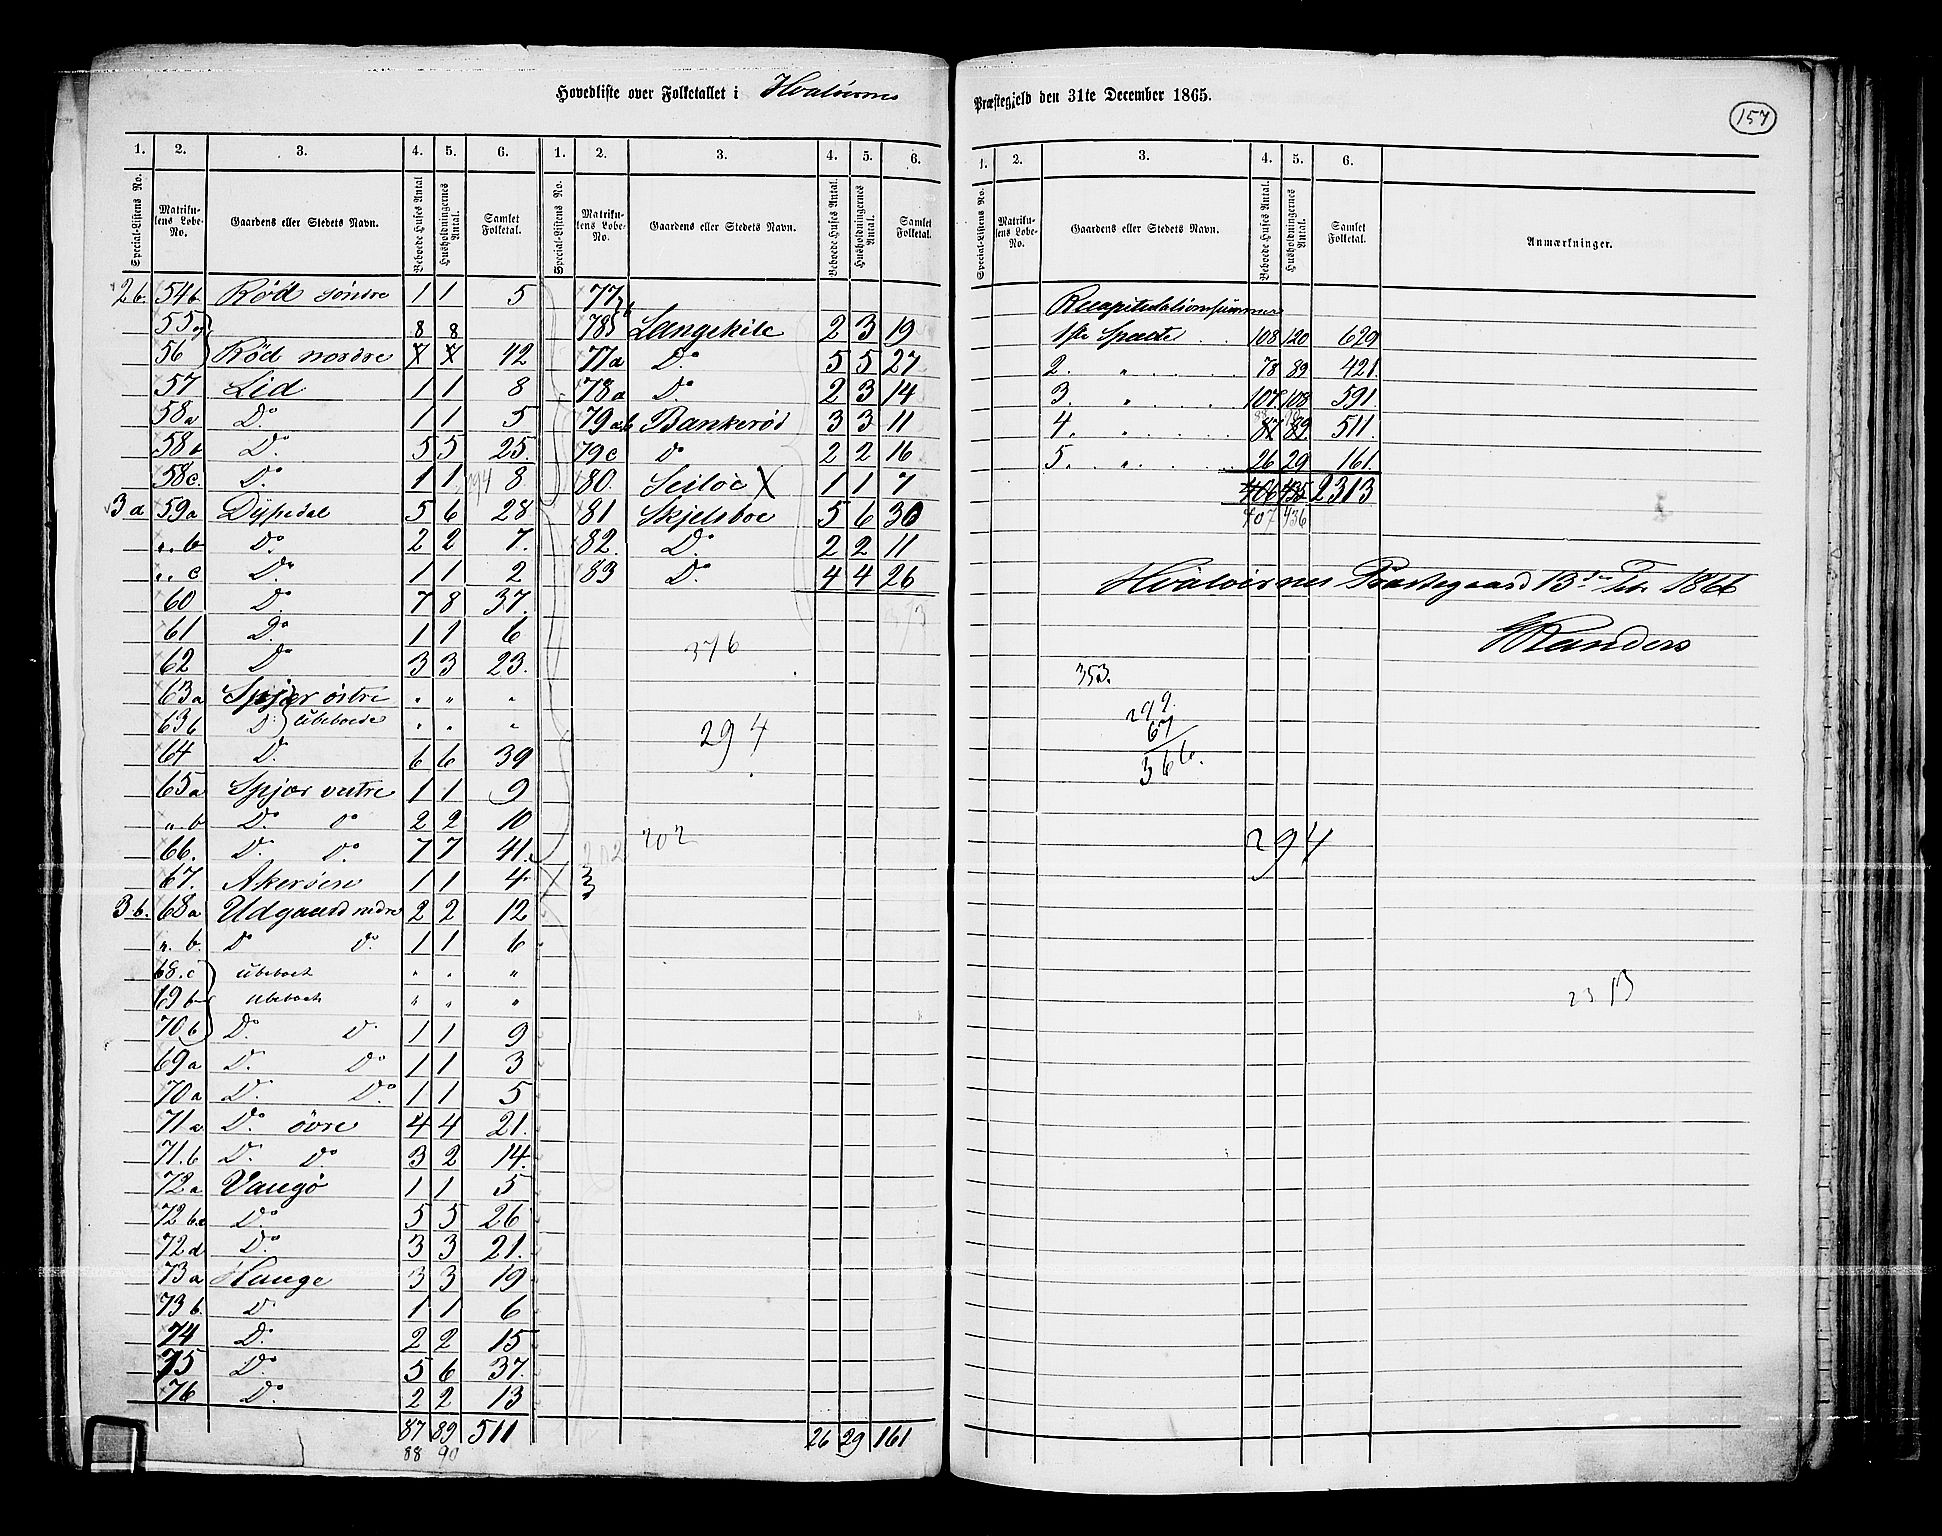 Hovedliste over Folketallet i Hvaløernes Præstegjeld den 31te December 1865.
157
1. 2. 3. 4. 5. 6. 1. 2. 3. 4. 5. 6.
Special-Listens No. Matrikulens Løbe-No. Gaardens eller Stedets Navn. Beboede Huses Antal Husholdningernes Antal. Samlet Folketal. Special-Listens No. Matrikulens Løbe-No. Gaardens eller Stedets Navn. Beboede Huses Antal. Husholdningernes Antal. Samlet Folketal.
2b. 54b Rød søndre 1 1 5
55 og 8 8
56 Rød nordre 7 7 42
57 Lid 1 1 8
58a Do 1 1 5
58b Do 5 5 25.
58c. Do 1 1 8
294
3a 59a Dypedal 5 6 28
„ b Do 2 2 7.
„ c Do 1 1 2
60 Do 7 8 37.
61 Do 1 1 6
62 Do 3 3 23.
63a Spjær østre „ „ „
63b D. ubeboede „ „ „
64 D. 6 6 39
65a Spjær vestre 1 1 9
„ b Do do 2 2 10
66. D. Do 7 7 41.
67. Akerøen 1 1 4.
3b. 68a Udgaard nedre 2 2 12
„ b. Do do 1 1 6
68.c ubeboet „ „ „
69b ubeboet „ „ „
70b Do D 1 1 9
69a D. Do 1 1 3
70a D. Do 1 1 5
71a Do øvre 4 4 21.
71.b Do Do 3 2 14.
72a Vaugø 1 1 5
72bc Do 5 5 26
72d Do 3 3 21.
73a Hauge 3 3 19
73b D. 1 1 6
74 Do 2 2 15
75 Do 5 6 37.
76 Do 2 2 13
87 89 511
88 90
77b
78b Langekile 2 3 19
77a Do 5 5 27
78a Do 2 3 14
79ab Bankerød 3 3 11
79c do 2 2 16
80. Seiløe X 1 1 7
81 Skjelsboe 5 6 30
82. Do 2 2 11
83 Do 4 4 26
373
376
294
202
202
3
3
26 29 161
1. 2. 3. 4. 5. 6.
Special-Listens No. Matrikulens Løbe-No. Gaardens eller Stedets Navn. Beboede Huses Antal. Husholdningernes Antal. Samlet Folketal. Anmærkninger.
Recapitulationssummer
1ste Spalte . . 108 120 629
2. „ . . . . . 78 89 421.
3. „ . . . 107. 108 591.
4. „ . . . . 87 89 511.
88 90
5. . . „ . . . . 26 29 161.
406 435 2313
407 436
Hvaløernes Præstegaard 13de Feb. 1866
353.
299.
67
366.
294